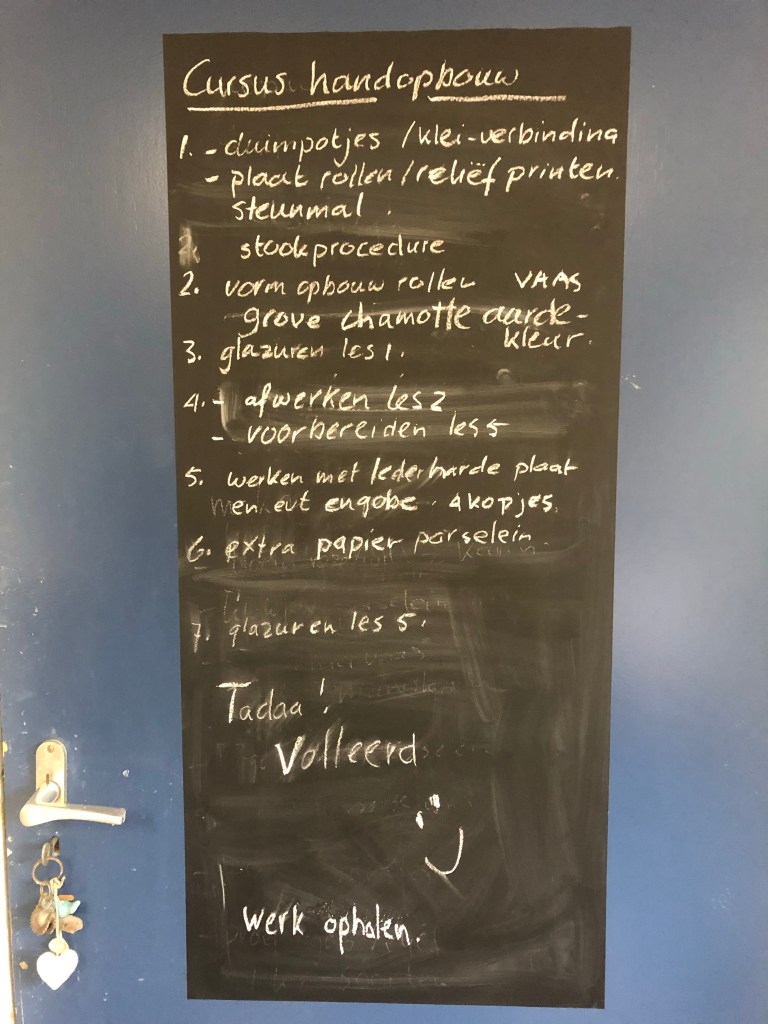 Cursus handopbouw
1. - duimpotjes / klei-verbinding
- plaat rollen / reliëf printen.
steunmal.
stookprocedure
2. vorm opbouw rollen VAAS
grove chamotte aarde-
kleur.
3. glazuren les 1.
4. - afwerken les 2
- voorbereiden les 5
5. werken met lederharde plaat
en evt engobe. 4 kopjes.
6. extra papier porselein.
7. glazuren les 5.
Tadaa!
Volleerd
werk ophalen.